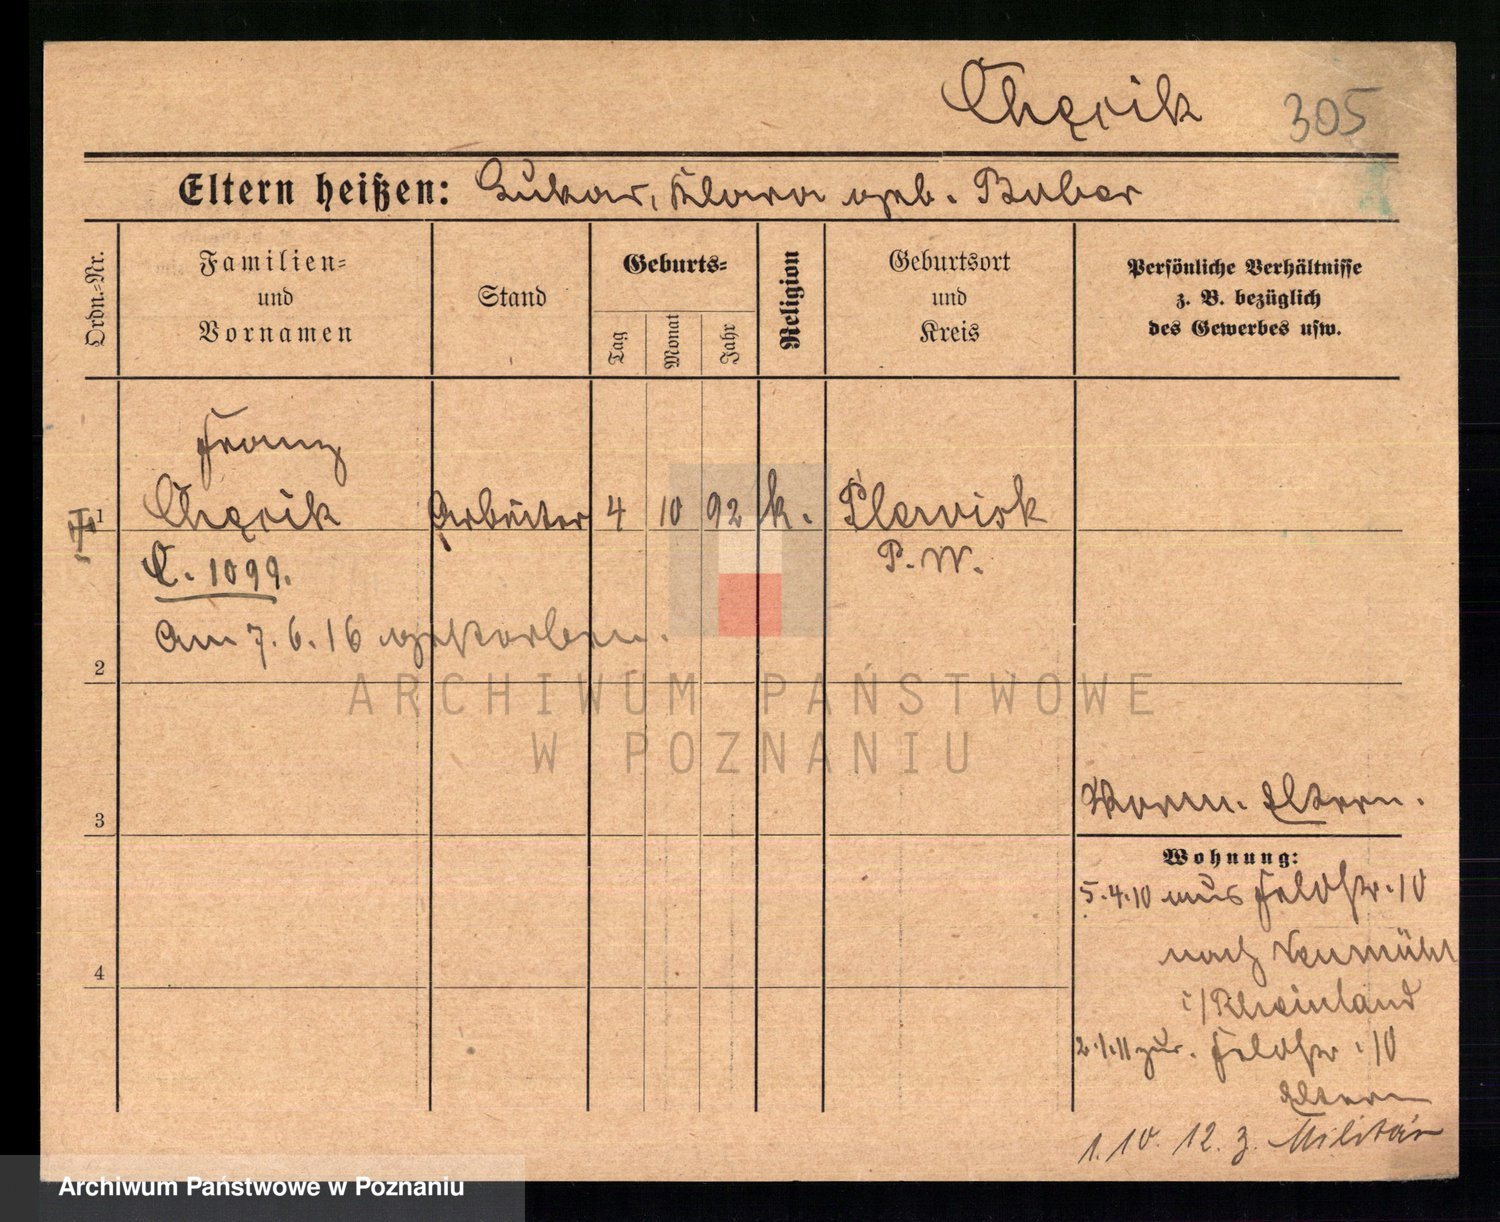 Chęcik 305
Eltern heißen: Lukas, Klara geb. Buber
Ordn.-Nr.
Familien-
und
Vornamen
Stand
Geburts-
Tag
Monat
Jahr
Religion
Geburtsort
und
Kreis
Persönliche Verhältnisse
z. B. bezüglich
des Gewerbes usw.
Franz
1 Chęcik Arbeiter 4 10 92 k. Plewisk
C. 1099. P. W.
Am 7.6.16 gestorben.
2
3
4
Vorm. Eltern.
Wohnung:
5.4.10 aus Feldstr. 10
nach Neumühl
i/Rheinland
2.1.11 zur. Feldstr. 10
Eltern
1.10.12. z. Militär
ARCHIWUM PAŃSTWOWE
W POZNANIU
Archiwum Państwowe w Poznaniu